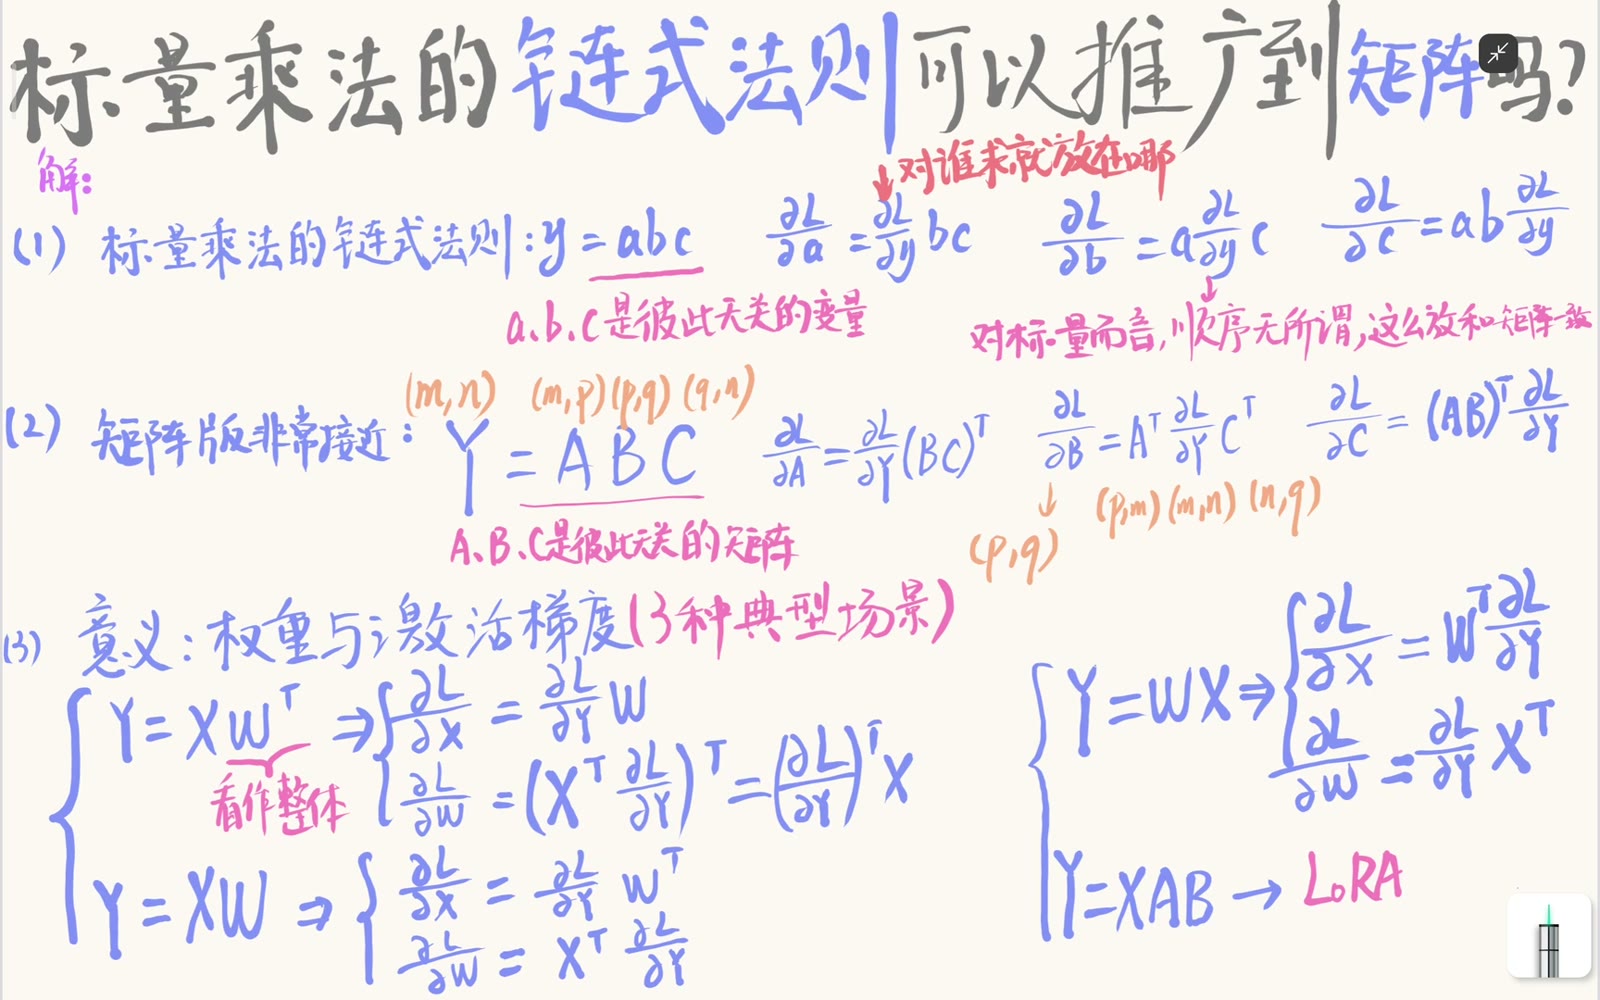 标量乘法的链式法则可以推广到矩阵吗?
解:
↓对谁求就放在哪
(1) 标量乘法的链式法则:y=abc ∂L/∂a=∂L/∂y bc ∂L/∂b=a ∂L/∂y c ∂L/∂c=ab ∂L/∂y
a、b、c是彼此无关的变量
↓
对标量而言,顺序无所谓,这么放和矩阵一致
(m,n) (m,p)(p,q)(q,n)
(2) 矩阵版非常接近: Y=ABC ∂L/∂A=∂L/∂Y(BC)ᵀ ∂L/∂B=Aᵀ ∂L/∂Y Cᵀ ∂L/∂C=(AB)ᵀ ∂L/∂Y
A、B、C是彼此无关的矩阵
↓ (p,m)(m,n)(n,q)
(p,q)
(3) 意义:权重与激活梯度(3种典型场景)
Y=XWᵀ ⇒ { ∂L/∂X = ∂L/∂Y W
∂L/∂W = (Xᵀ ∂L/∂Y)ᵀ = (∂L/∂Y)ᵀ X
看作整体
Y=XW ⇒ { ∂L/∂X = ∂L/∂Y Wᵀ
∂L/∂W = Xᵀ ∂L/∂Y
Y=WX ⇒ { ∂L/∂X = Wᵀ ∂L/∂Y
∂L/∂W = ∂L/∂Y Xᵀ
Y=XAB → LoRA